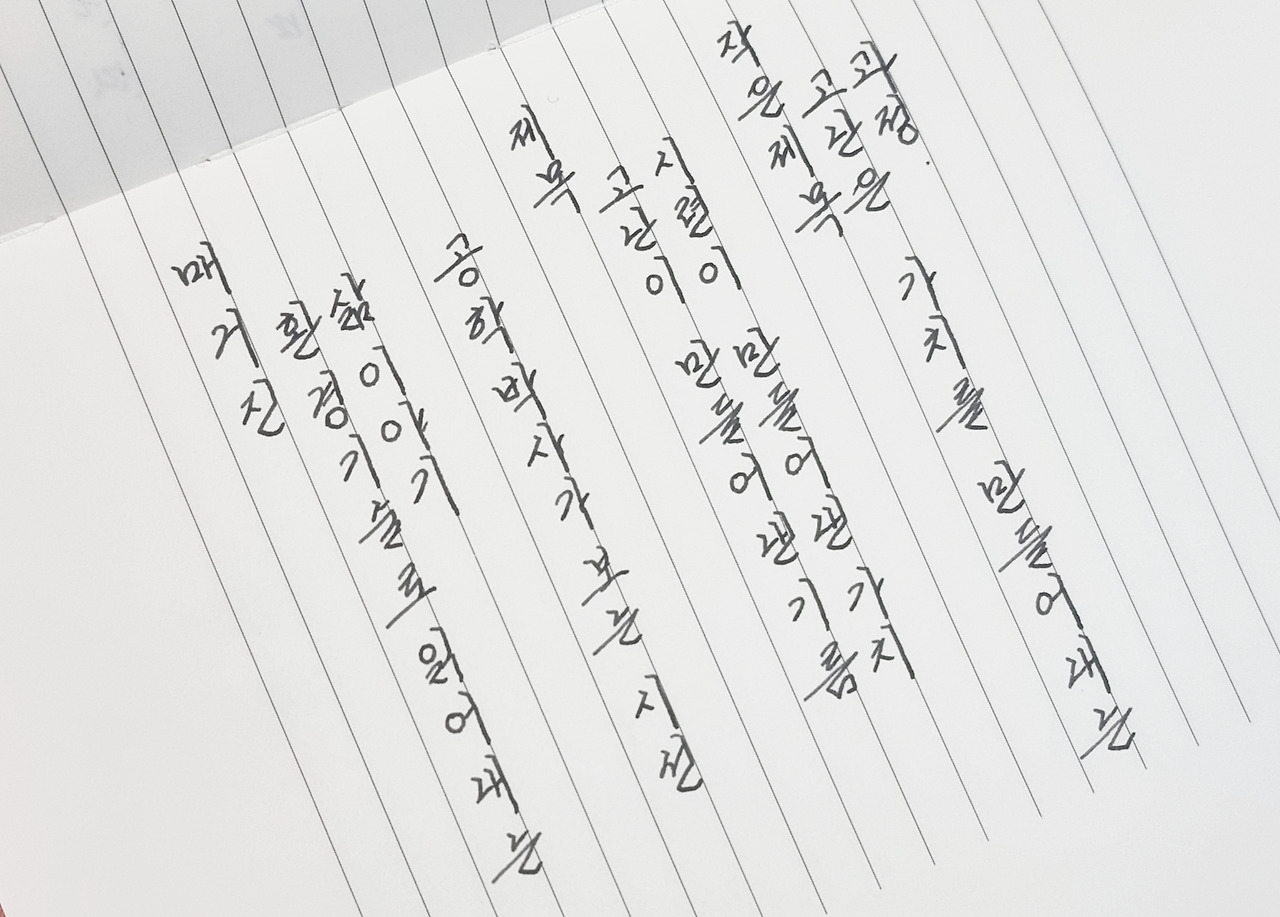 매거진
환경기술로 읽어내는
삶이야기
공학박사가 보는 시선
제목
고난이 만들어낸 기름
시련이 만들어낸 가치
작은제목
고난은 가치를 만들어내는
과정.